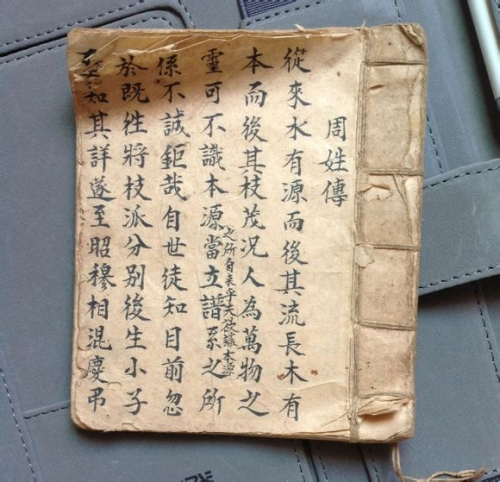 周姓傳
從來水有源而後其流長木有
本而後其枝茂況人為萬物之
靈可不識本源當立譜系之所
之所自来乎夫欲識本源
係不誠鉅哉自世徒知目前忽
於既徃將枝派分別後生小子
知其詳遂至昭穆相混慶弔